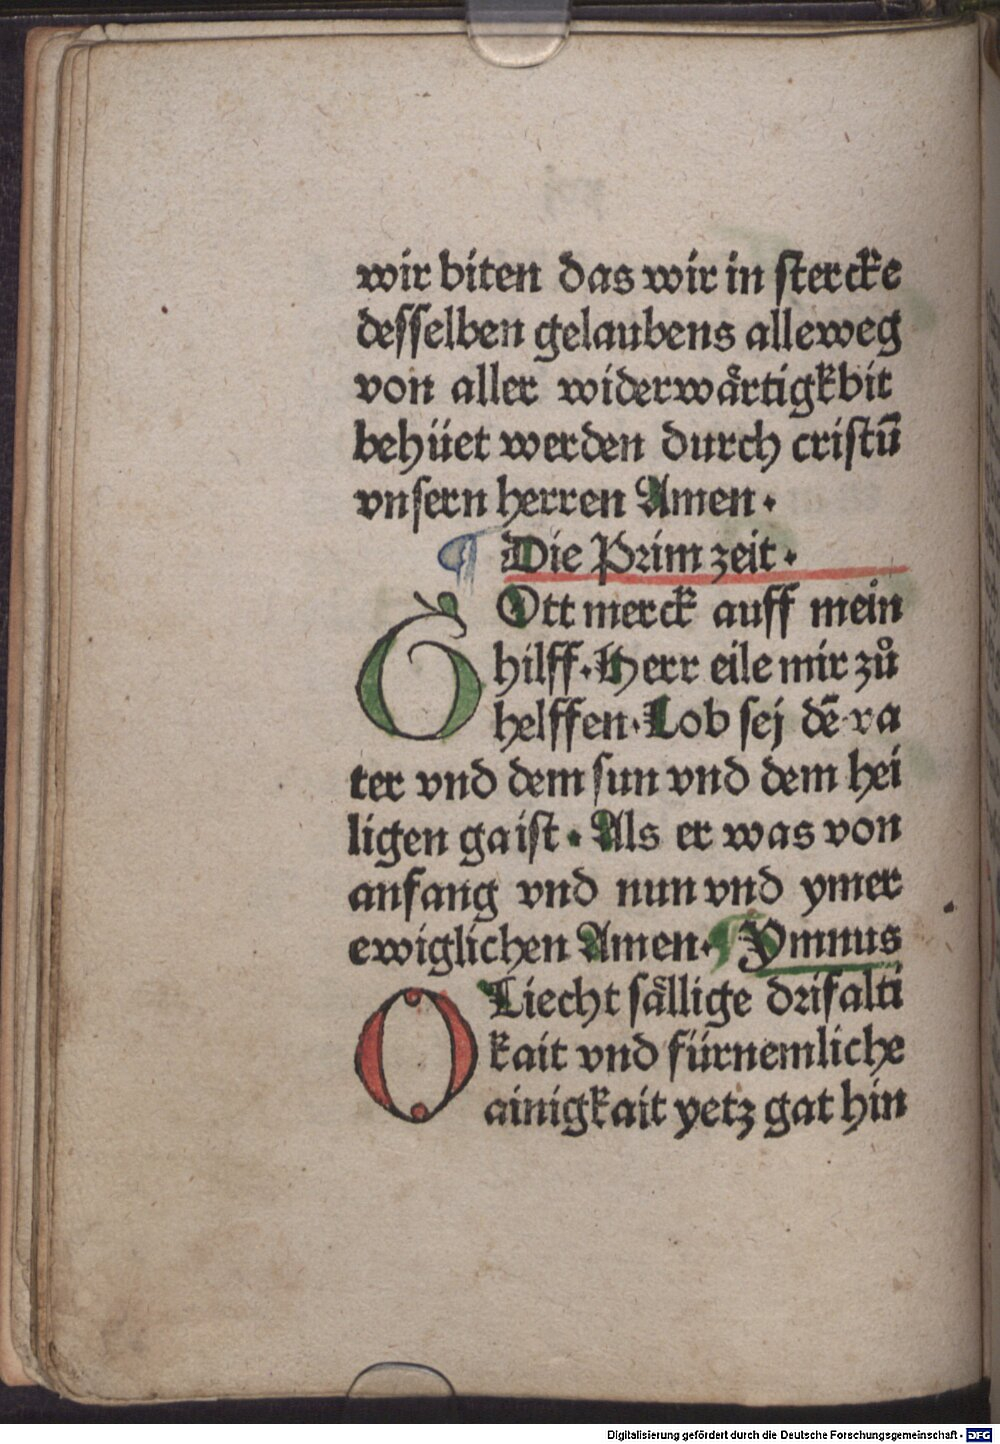 wir biten das wir in stercke
desselben gelaubens alleweg
von aller widerwårtigkbit
behüet werden durch cristū
vnsern herren Amen·
¶ Die Prim zeit·
GOtt merck auff mein
hilff·Herr eile mir zů
helffen·Lob sej dē va
ter vnd dem sun vnd dem hei
ligen gaist·Als er was von
anfang vnd nun vnd ymer
ewiglichen Amen· Ymnus
O Liecht sållige drifalti
kait vnd fürnemliche
ainigkait yetz gat hin
Digitalisierung gefördert durch die Deutsche Forschungsgemeinschaft · DFG